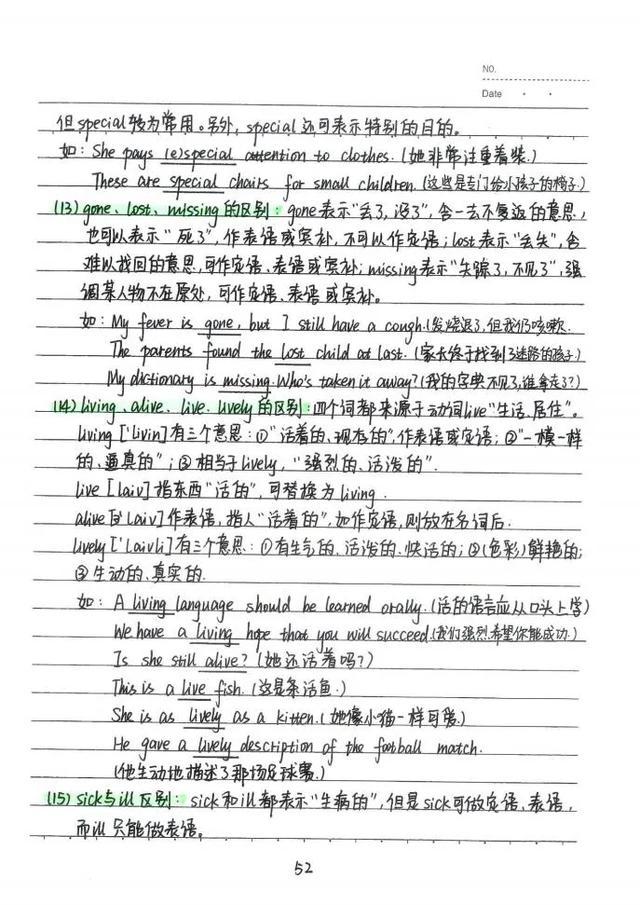 NO.
Date
但special较为常用。另外，special还可表示特别的目的。
如：She pays (e)special attention to clothes.(她非常注重着装.)
These are special chairs for small children.(这些是专门给小孩子的椅子.)
(13) gone、lost、missing的区别：gone表示"丢了，没了"，含一去不复返的意思，
也可以表示"死了"，作表语或宾补，不可以作定语；lost表示"丢失"，含
难以找回的意思，可作定语、表语或宾补；missing表示"失踪了，不见了"，强
调某人物不在原处，可作定语、表语或宾补。
如：My fever is gone, but I still have a cough.(发烧退了，但我仍咳嗽.
The parents found the lost child at last.(家长终于找到了迷路的孩子.)
My dictionary is missing. Who's taken it away?(我的字典不见了，谁拿走了?)
(14) living、alive、live、lively的区别：四个词都来源于动词live"生活、居住"。
living ['livin]有三个意思：①"活着的、现存的"，作表语或定语；②"一模一样
的、逼真的"；③相当于lively，"强烈的、活泼的".
live [laiv]指东西"活的"，可替换为living.
alive [ə'laiv]作表语，指人"活着的"，如作定语，则放在名词后.
lively ['laivli]有三个意思：①有生气的、活泼的、快活的；②(色彩)鲜艳的；
③生动的、真实的.
如：A living language should be learned orally.(活的语言应从口头上学)
We have a living hope that you will succeed.(我们强烈希望你能成功.)
Is she still alive?(她还活着吗?)
This is a live fish.(这是条活鱼.)
She is as lively as a kitten.(她像小猫一样可爱.)
He gave a lively description of the football match.
(他生动地描述了那场足球赛.)
(15) sick与ill区别：sick和ill都表示"生病的"，但是sick可做定语、表语，
而ill只能做表语。
52